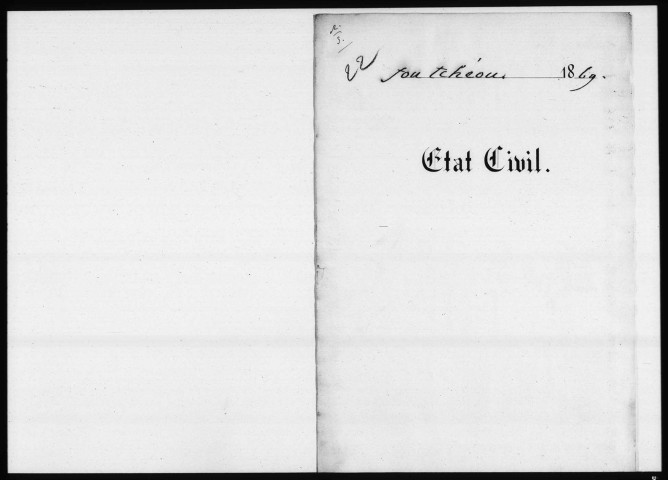 22
Fou tchéou. 1869.
Etat Civil.